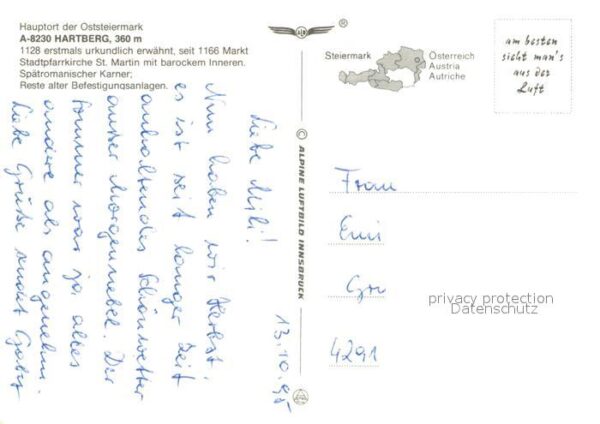 Hauptort der Oststeiermark
A-8230 HARTBERG, 360 m
1128 erstmals urkundlich erwähnt, seit 1166 Markt
Stadtpfarrkirche St. Martin mit barockem Inneren.
Spätromanischer Karner;
Reste alter Befestigungsanlagen.
®
Steiermark
Österreich
Austria
Autriche
am besten
sieht man's
aus der
Luft
© ALPINE LUFTBILD INNSBRUCK
13.10.95
Liebe Mili!
Nun haben wir Herbst,
es ist seit langer Zeit
anhaltendes Schönwetter
außer Morgennebel. Der
Sommer war ja alles
andere als angenehm.
Liebe Grüße sendet Gaby
Frau
Emi
Gru
4291
privacy protection
Datenschutz